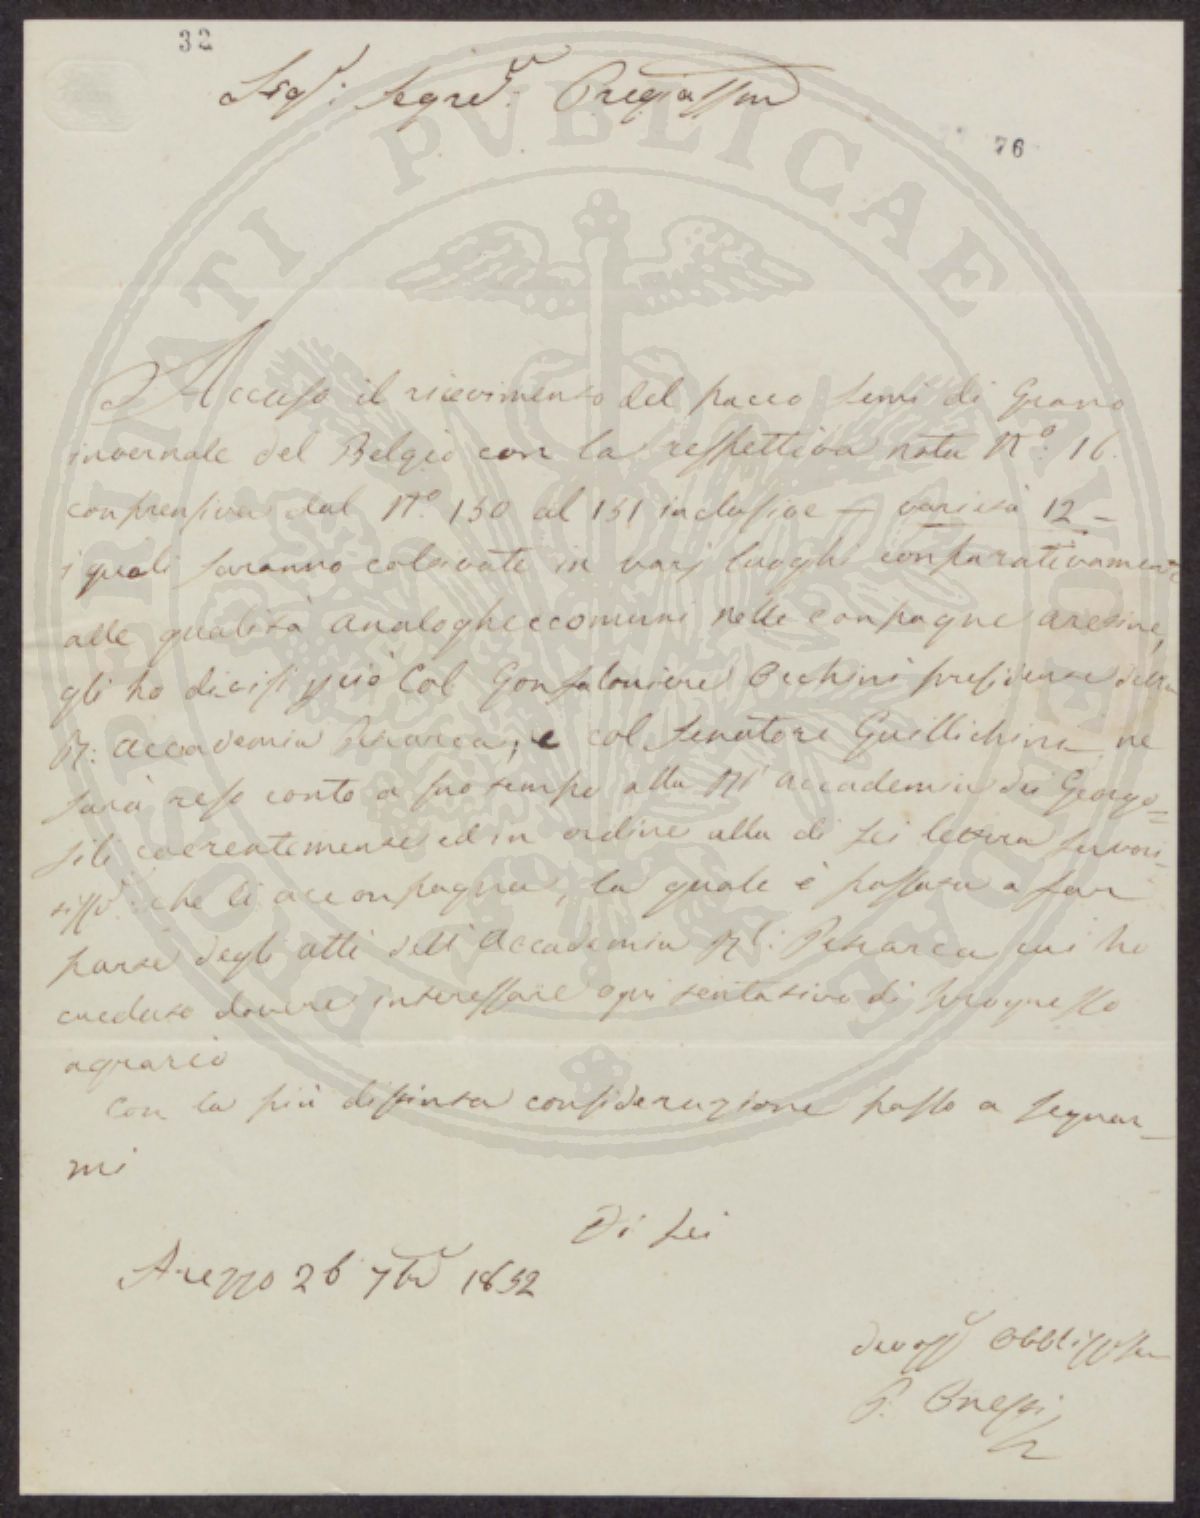 32
Sigr: Segreo: Pregiassmo
76
Accuso il ricevimento del pacco semi di Grano
invernale del Belgio con la respettiva nota No: 16.
comprensiva dal No. 130 al 151 inclusive — varietà 12 –
i quali saranno coltivati in varj luoghi comparativamente
alle qualità analoghe e comuni nelle campagne aretine,
gli ho divisi perciò col Gonfaloniere Occhini presidente della
R: accademia Petrarca, e col Senatore Guillichini ne
sarà reso conto a suo tempo alla Rl accademia dei Georgo=
fili coerentemente ed in ordine alla di Lei lettera favori=
tissa: che li accompagna, la quale è passata a far
parte degli atti dell'Accademia Rl: Petrarca cui ho
creduto dovere interessare ogni tentativo di progresso
agrario
Con la più distinta considerazione passo a segnar=
mi
Di Lei
Arezzo 26 7bre 1852
Devoss Obbligassmo
P.